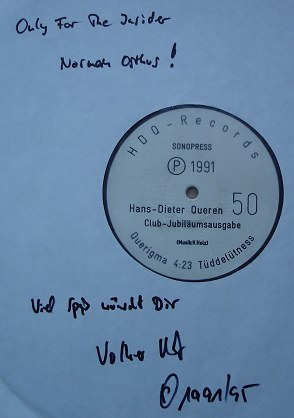 Only For The Insider
Norman Osthus!
HDQ-Records
SONOPRESS
Ⓟ 1991
Hans-Dieter Queren 50
Club-Jubiläumsausgabe
(Musik: R. Heiz)
Querigma 4:23 Tüddelütness
Viel Spaß wünscht Dir
Volker
©1991/95